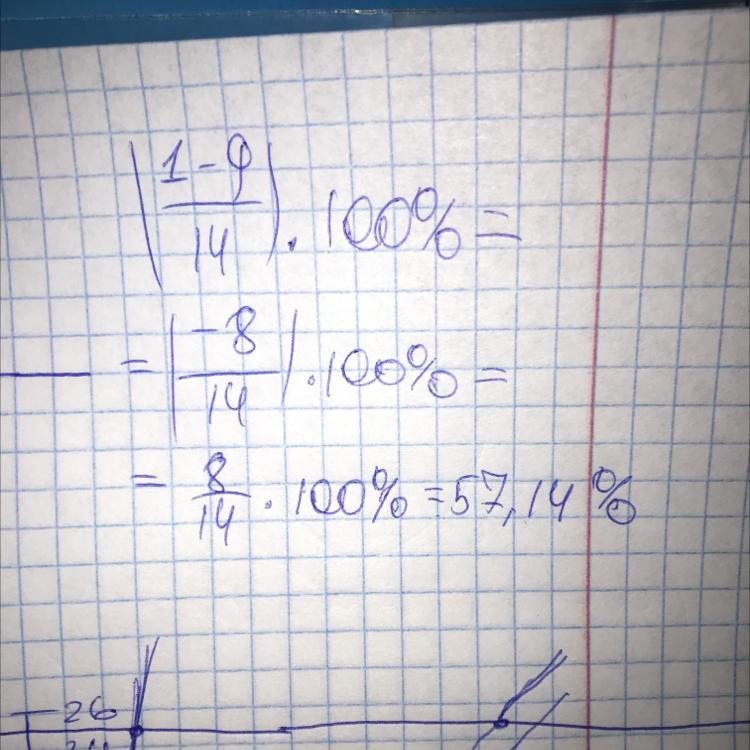 |1-9/14| · 100% =
= |-8/14| · 100% =
= 8/14 · 100% = 57,14%
26